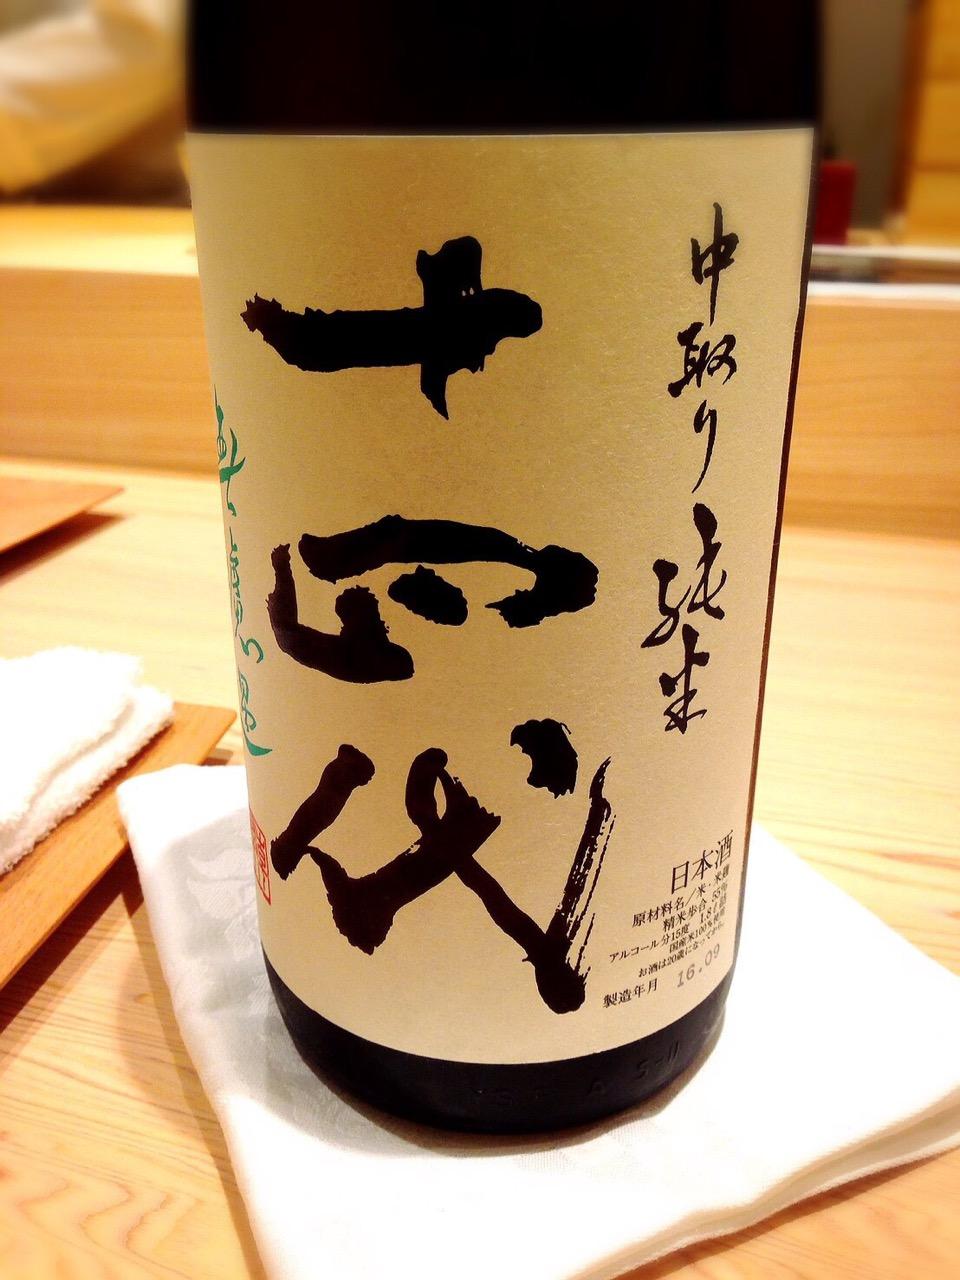 中取り純米
十四代
無濾過
日本酒
原材料名/米・米麹
精米歩合 55%
アルコール分15度 1.8ℓ詰
国産米100%使用
お酒は20歳になってから。
製造年月 16.09